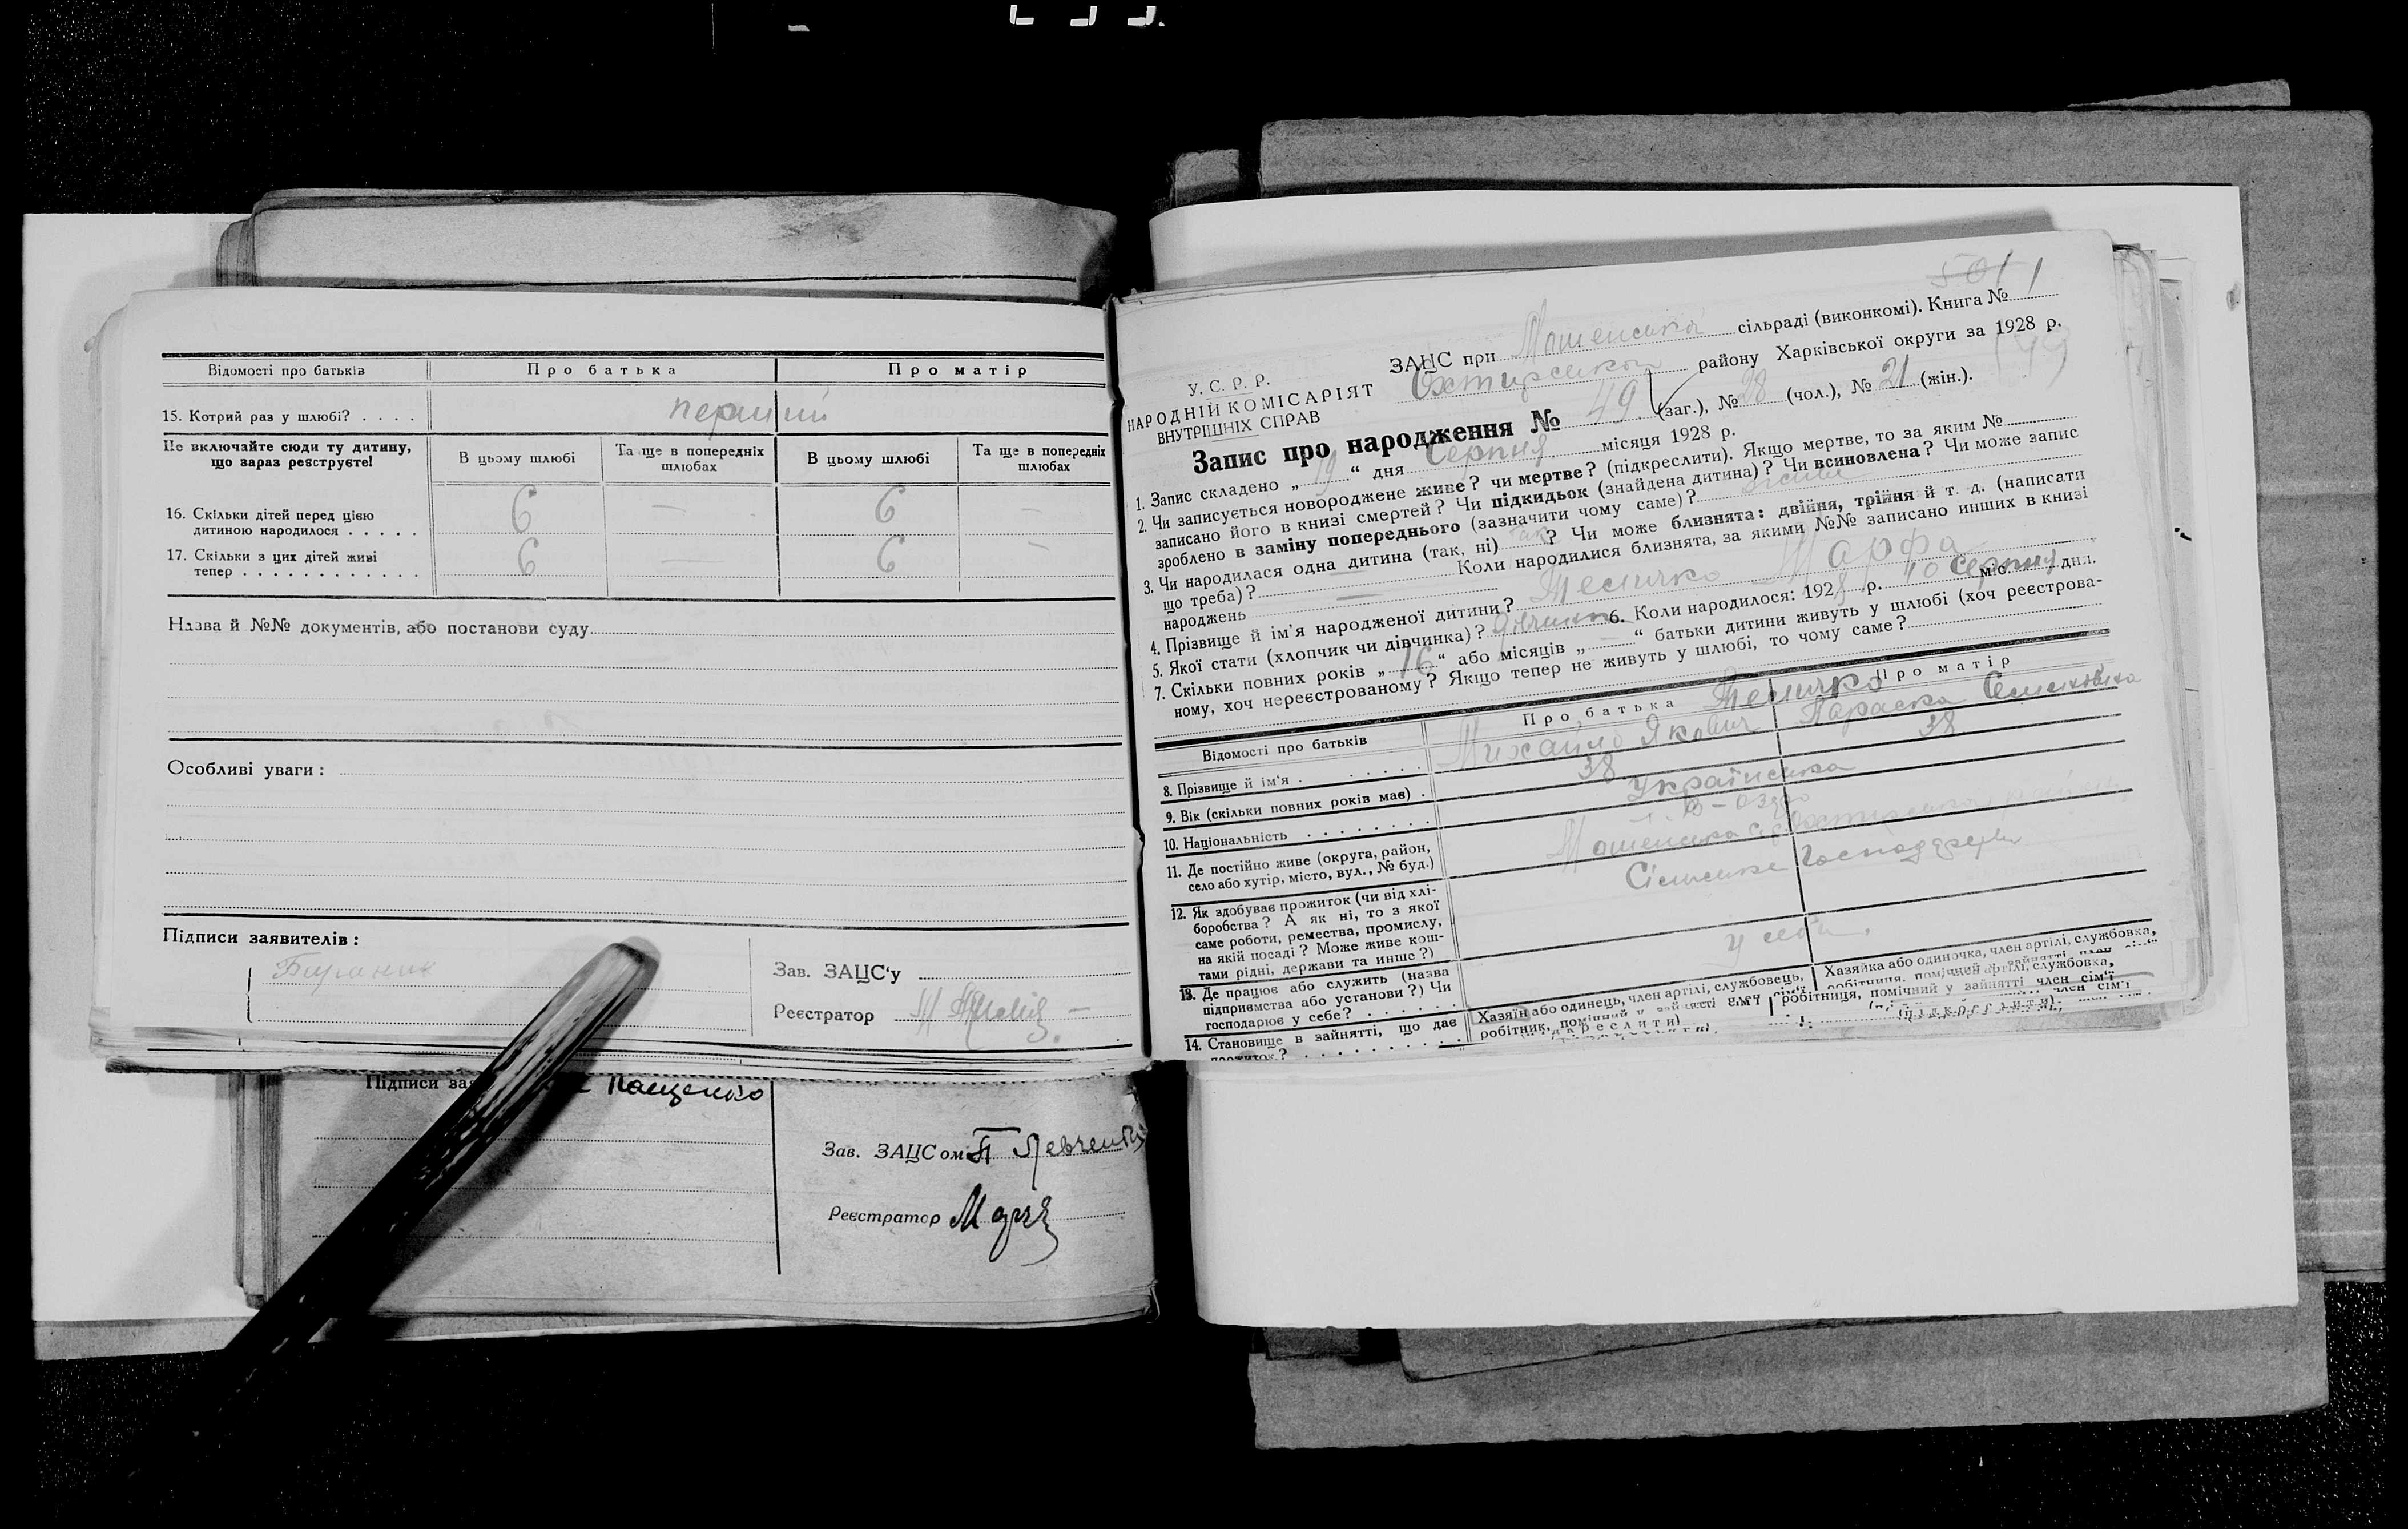 Відомості про батьків Про батька Про матір
15. Котрий раз у шлюбі? . . . . перший
Не включайте сюди ту дитину, що зараз реєструєте!
В цьому шлюбі Та ще в попередніх шлюбах В цьому шлюбі Та ще в попередніх шлюбах
16. Скільки дітей перед цією
дитиною народилося . . . . . 6 — 6 —
17. Скільки з цих дітей живі
тепер . . . . . . . . . . . . . 6 — 6 —
Назва й №№ документів, або постанови суду
Особливі уваги:
Підписи заявителів:
Зав. ЗАЦС'у
Реєстратор
Підписи зая
Пащенко
Зав. ЗАЦСом П Левченко
Реєстратор
501
У.С.Р.Р.
НАРОДНІЙ КОМІСАРІЯТ
ВНУТРІШНІХ СПРАВ
ЗАЦС при сільраді (виконкомі). Книга № 1
Охтирської району Харківської округи за 1928 р.
Запис про народження № 49 (заг.), № 28 (чол.), № 21 (жін.).
1. Запис складено „ 19 “ дня Серпня місяця 1928 р.
2. Чи записується новороджене живе? чи мертве? (підкреслити). Якщо мертве, то за яким №
записано його в книзі смертей? Чи підкидьок (знайдена дитина)? Чи всиновлена? Чи може запис
зроблено в заміну попереднього (зазначити чому саме)?
3. Чи народилася одна дитина (так, ні) так ? Чи може близнята: двійня, трійня й т. д. (написати
що треба)? — Коли народилися близнята, за якими №№ записано инших в книзі
народжень
4. Прізвище й ім'я народженої дитини? Тесличко Марфа
5. Якої стати (хлопчик чи дівчинка)? дівчинка 6. Коли народилося: 1928 р. 10 Серпня міс. дня.
7. Скільки повних років „ 16 “ або місяців „ — “ батьки дитини живуть у шлюбі (хоч реєстрова-
ному, хоч нереєстрованому? Якщо тепер не живуть у шлюбі, то чому саме?
Відомості про батьків Про батька Про матір
Тесличко
8. Прізвище й ім'я . . . . . . Михайло Якович Параска Семеновна
9. Вік (скільки повних років має) . 38 38
10. Національність . . . . . . . . Українська
11. Де постійно живе (округа, район,
село або хутір, місто, вул., № буд.)
12. Як здобуває прожиток (чи від хлі-
боробства? А як ні, то з якої
саме роботи, ремества, промислу,
на якій посаді? Може живе кош-
тами рідні, держави та инше?)
Сільське Господарство
13. Де працює або служить (назва
підприємства або установи?) Чи
господарює у себе? . . . . . . у себе
14. Становище в зайнятті, що дає
прожиток? . . . . . . . . . .
Хазяїн або одинець, член артілі, службовець,
робітник, помічний у зайнятті член сім'ї
(підкреслити)
Хазяйка або одиночка, член артілі, службовка,
робітниця, помічний у зайнятті член сім'ї
(підкреслити)